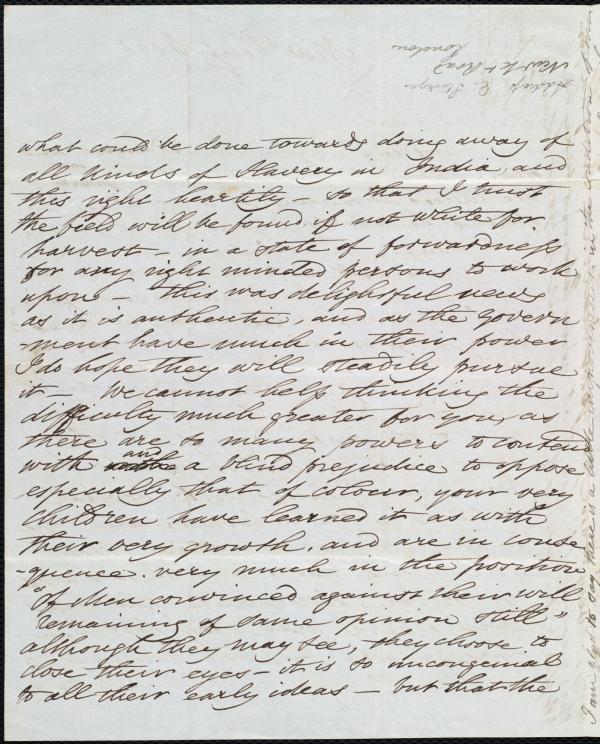 what could be done towards doing away of
all kinds of Slavery in India, and
this right heartily – so that I trust
the field will be found if not white for
harvest – in a state of forwardness
for any right minded persons to work
upon – this was delightful news
as it is authentic, and as the govern
-ment have much in their power
I do hope they will steadily pursue
it – We cannot help thinking the
difficulty much greater for you, as
there are so many powers to contend
with and a blind prejudice to oppose
especially that of colour, your very
children have learned it as with
their very growth, and are in conse
-quence very much in the position
"of Men convinced against their will
remaining of same opinion still"
although they may see, they choose to
close their eyes – it is so uncongenial
to all their early ideas – but that the
Address E Sturge
New Kt Road
London
I am glad to say there is a little improvement in the